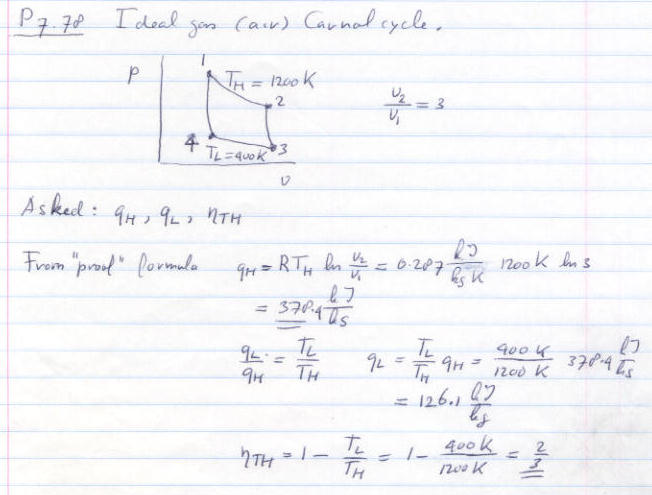 P7.78 Ideal gas (air) Carnot cycle.
1
P
T_H = 1200 K
2
v_2/v_1 = 3
4
T_L = 400K
3
v
Asked: q_H, q_L, η_TH
From "proof" formula q_H = RT_H ln v_2/v_1 = 0.287 kJ/kg K 1200 K ln 3
= 378.4 kJ/kg
q_L/q_H = T_L/T_H q_L = T_L/T_H q_H = 400 K/1200 K 378.4 kJ/kg
= 126.1 kJ/kg
η_TH = 1 - T_L/T_H = 1 - 400 K/1200 K = 2/3